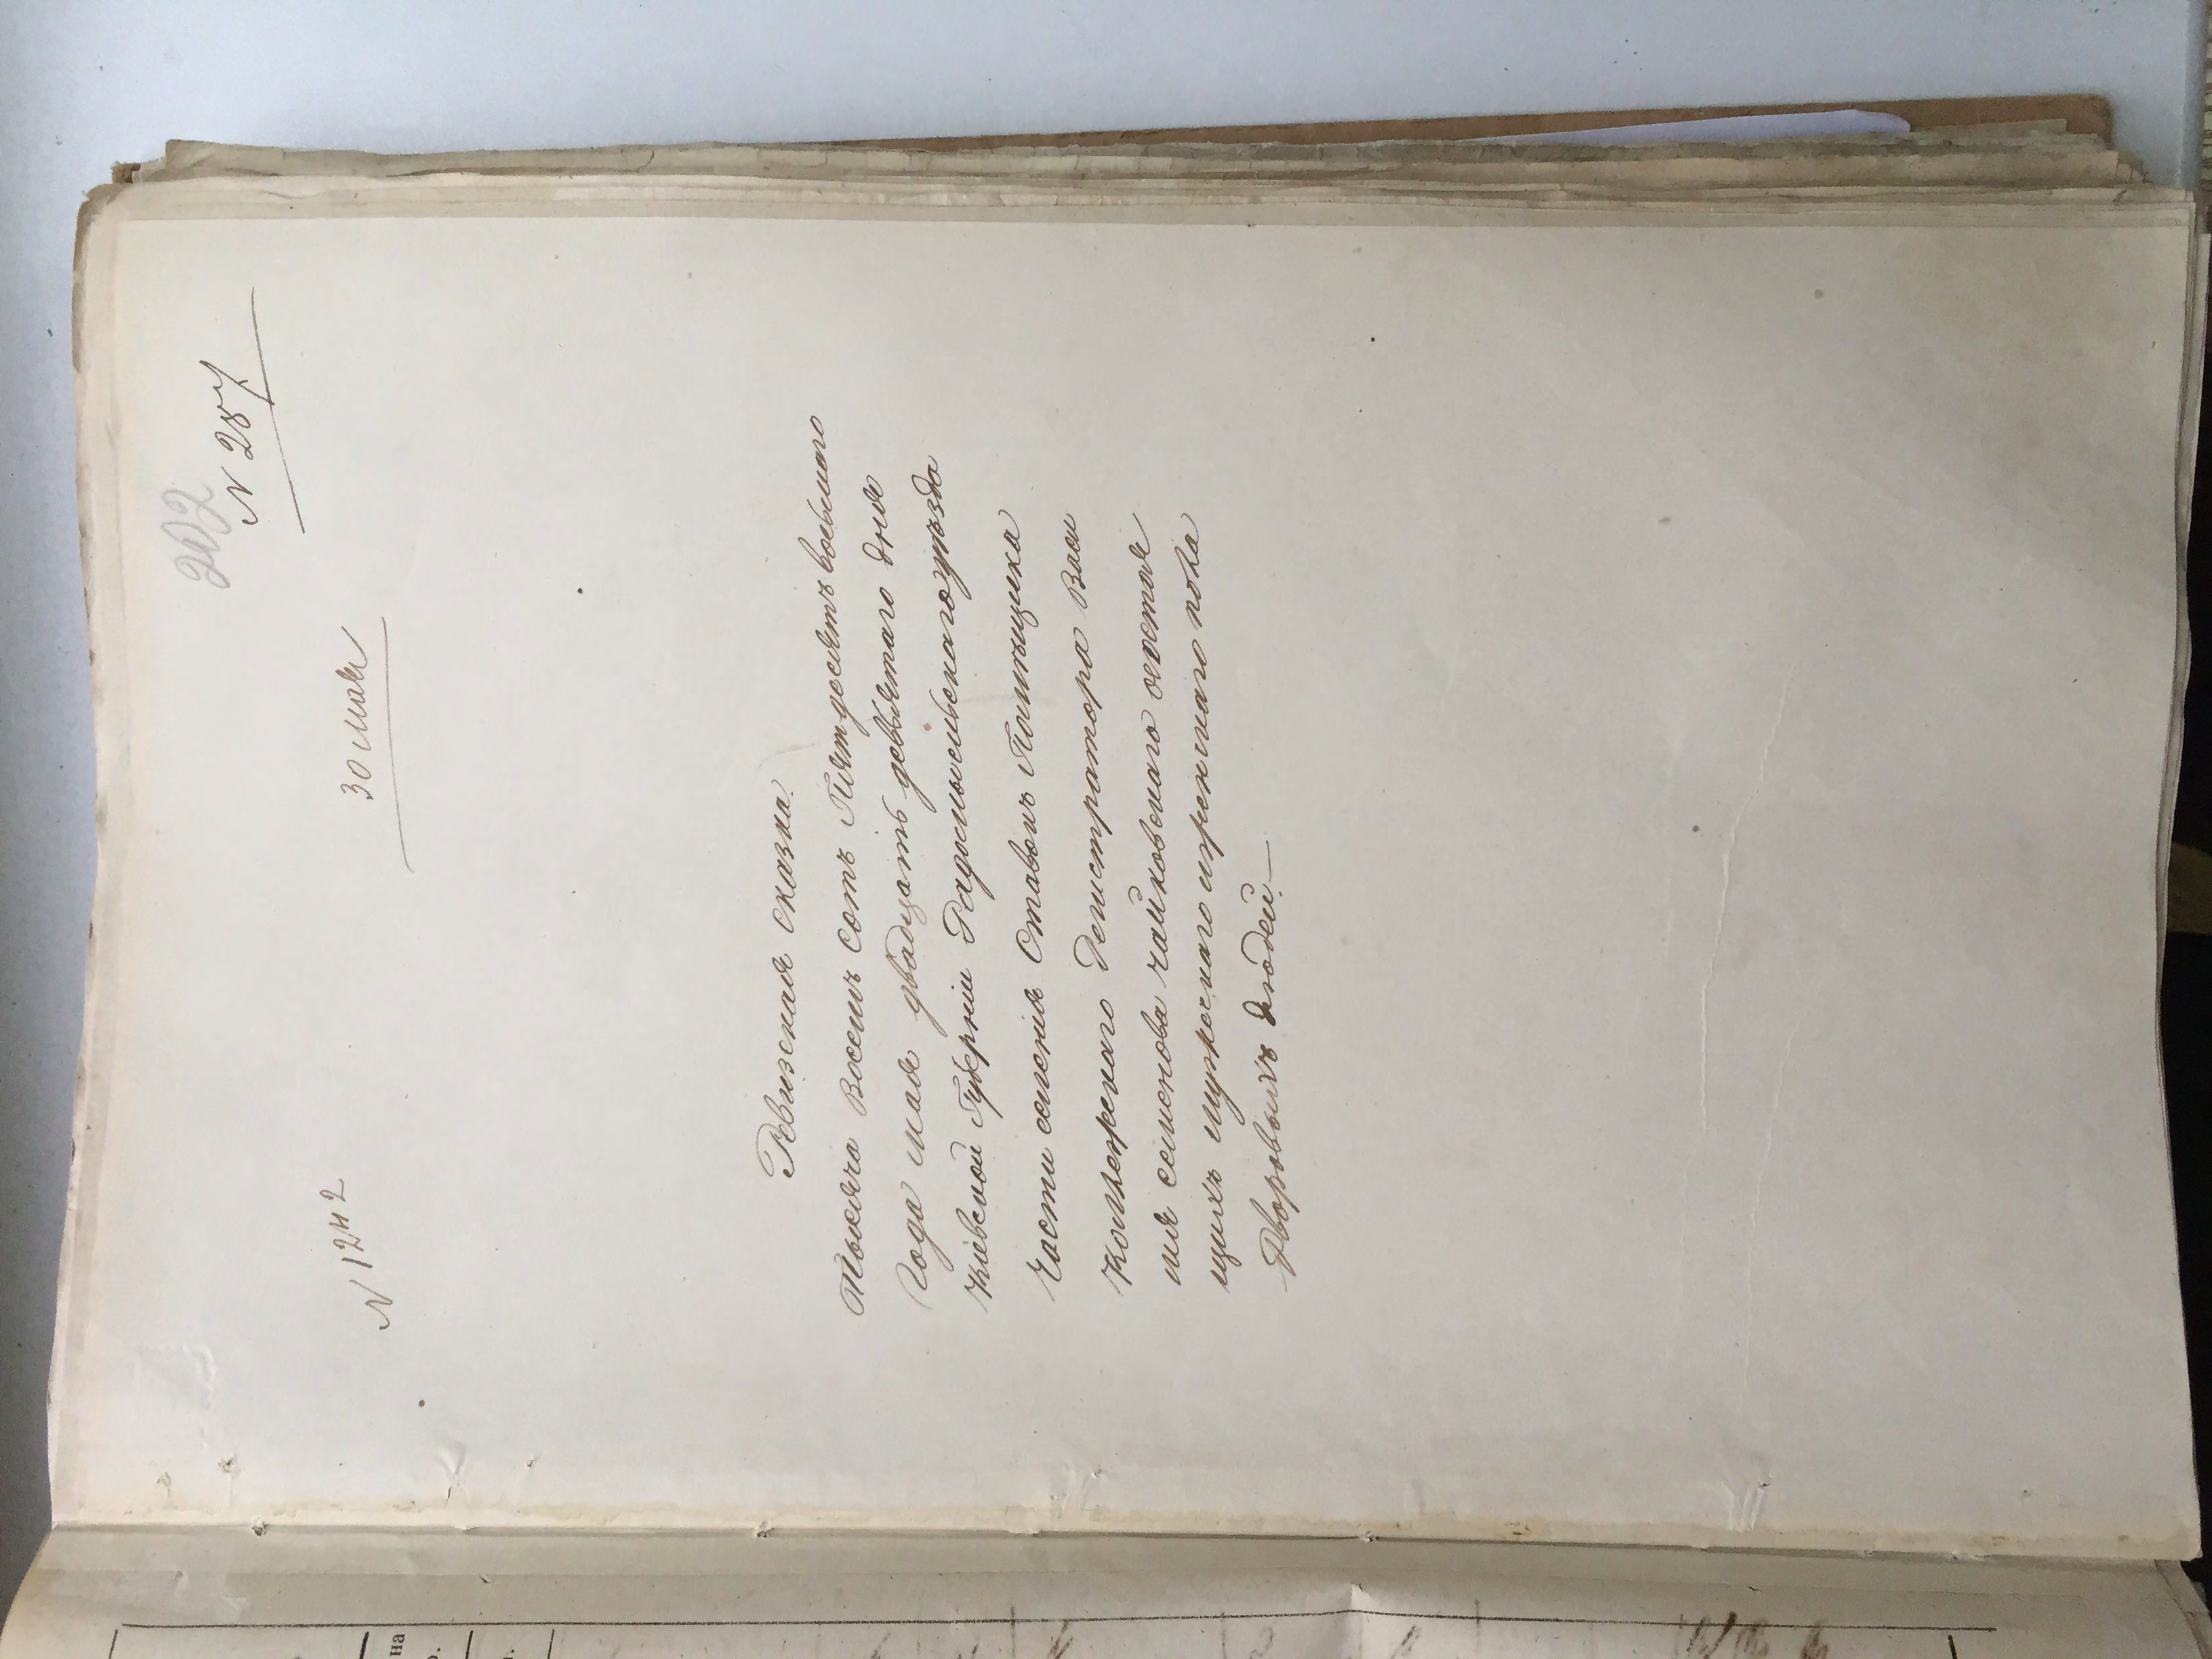 202
N 287
30 мая
N 1242
Ревизская сказка.
Тысяча Восемь сотъ Пятдесятъ восьмаго
Года мая двадцать девятаго дня
Кіевской Губерніи Радомысльскаго уѣзда
Части селенія Ставокъ Помѣщика
Коллежскаго Регистратора Васи
лія семенова чайковскаго о состоя
щихъ мужескаго и женскаго пола
Дворовыхъ людей.—
на